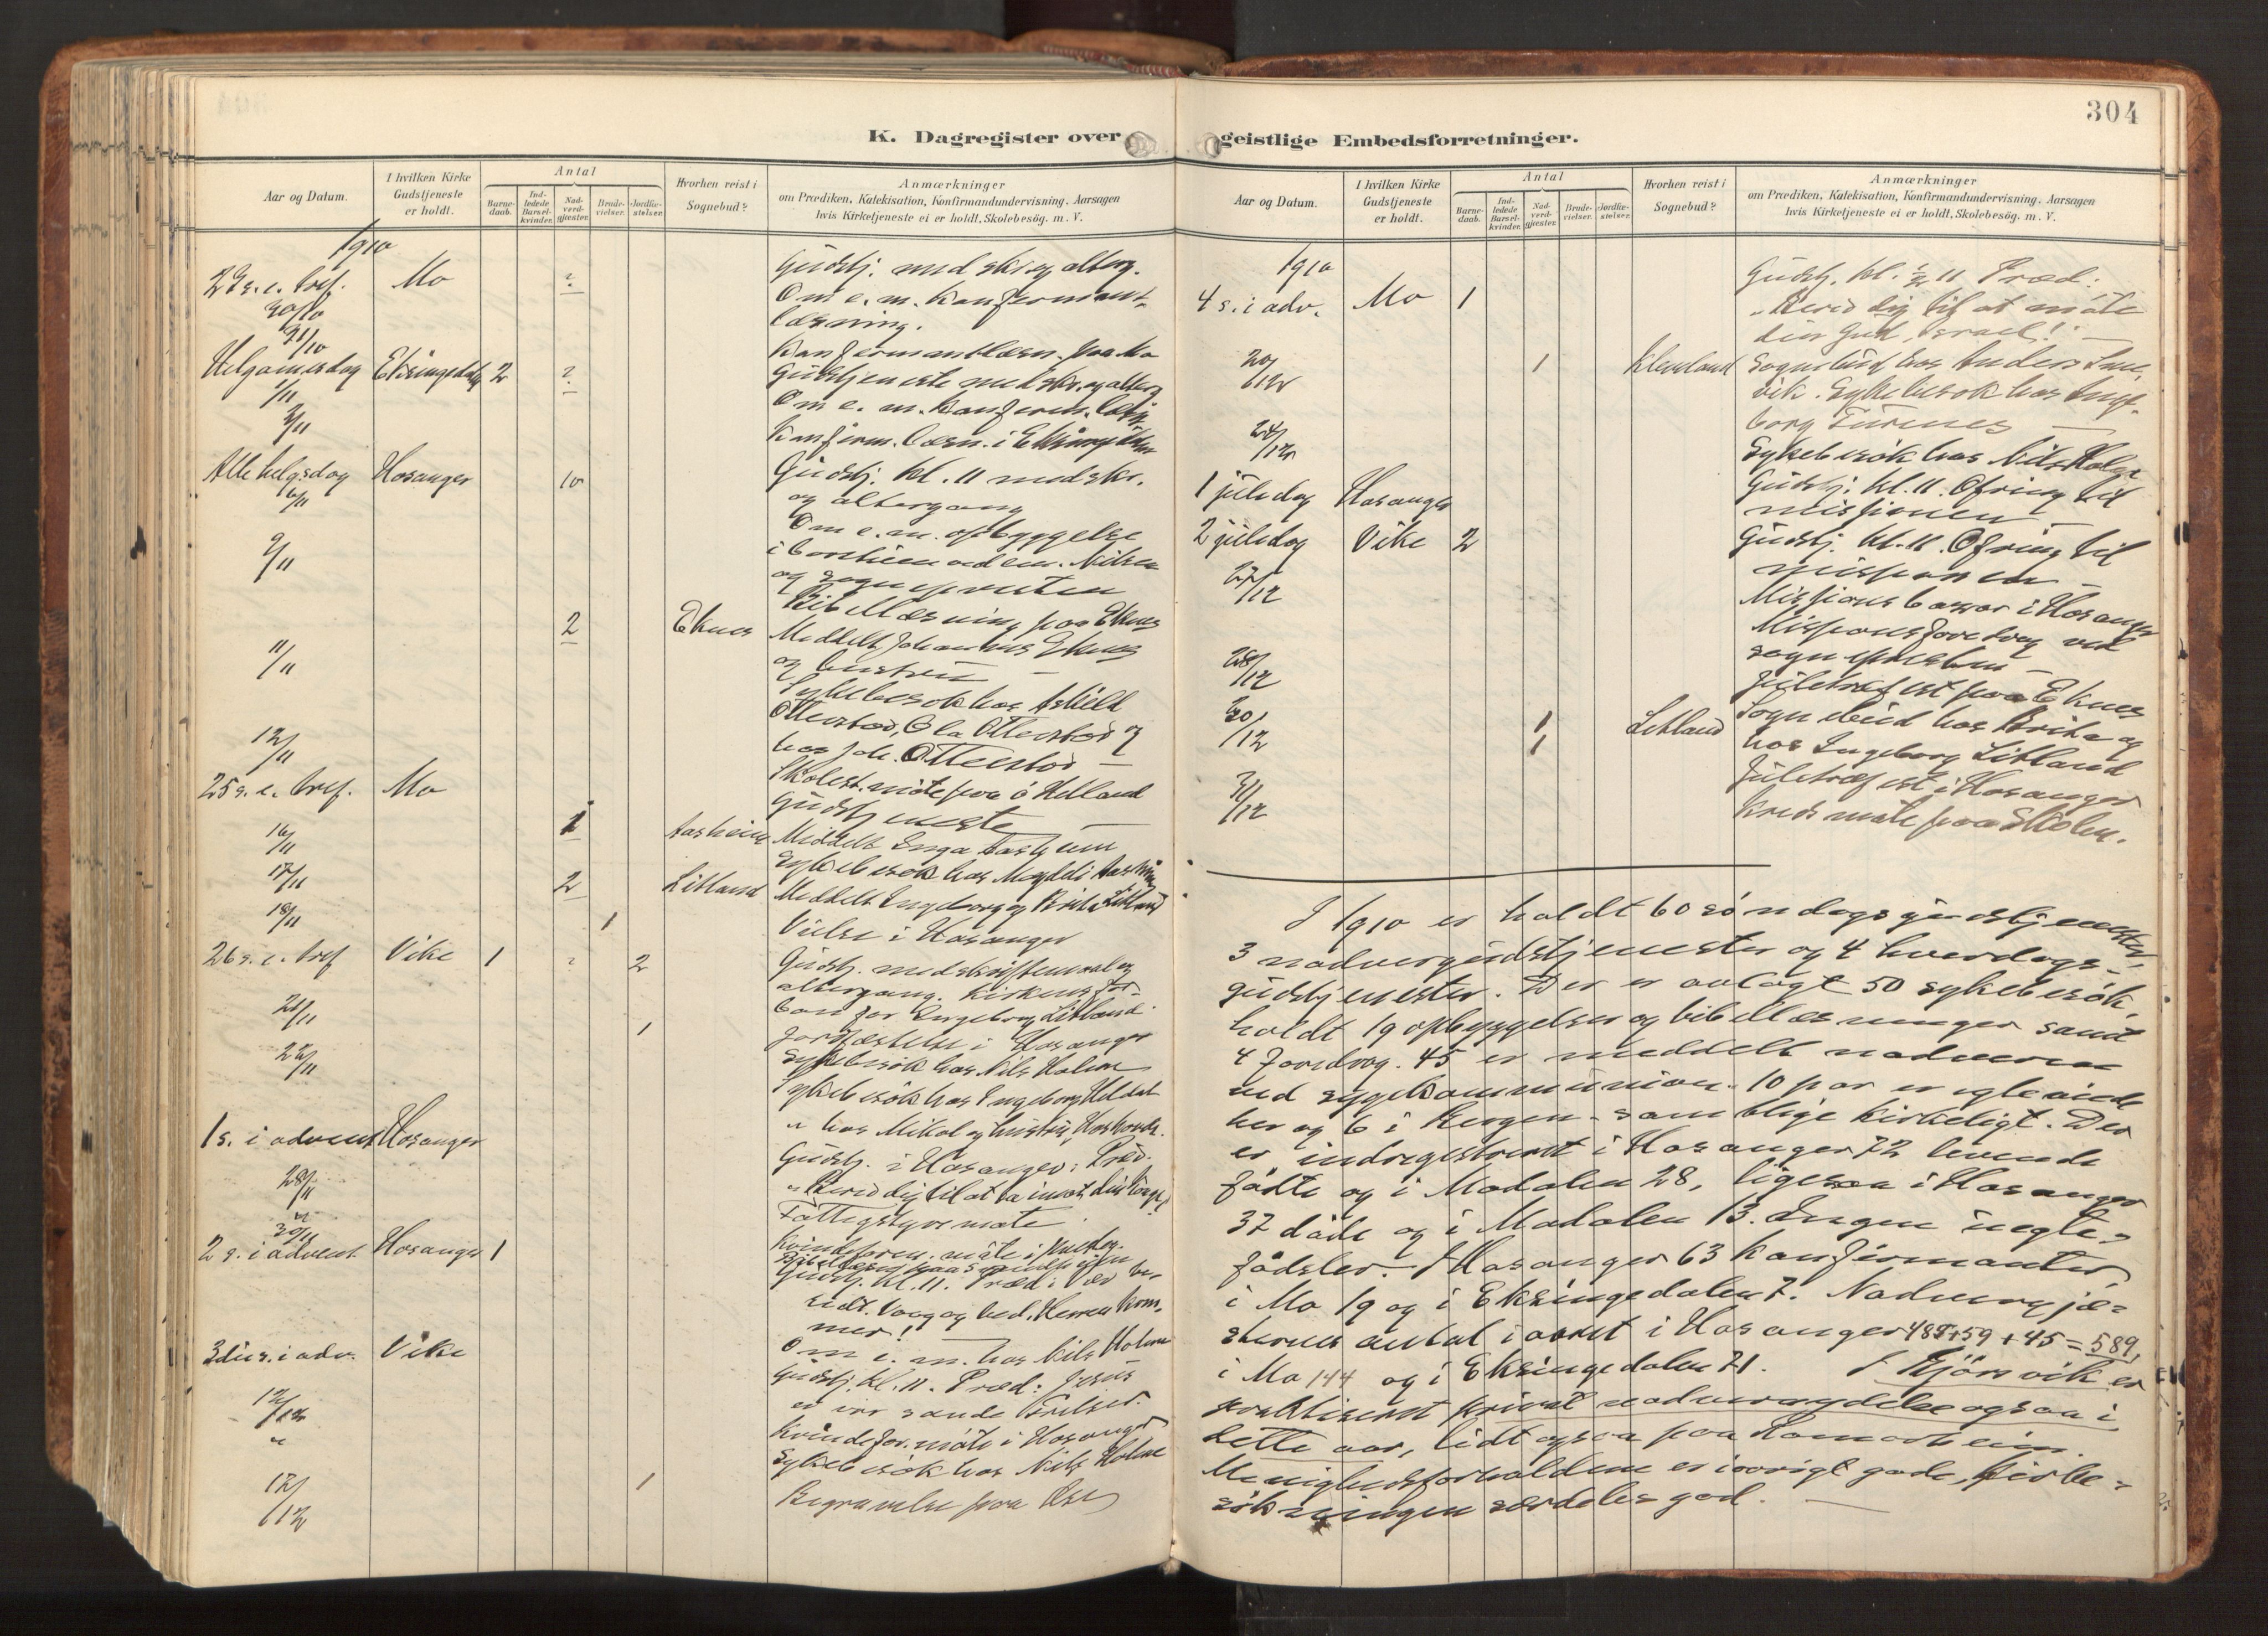 304
K. Dagregister over
Aar og Datum.
I hvilken Kirke Gudstjeneste er holdt.
Antal
Barnedaab.
Indledede Barselkvinder.
Nadverdgjester.
Brudevielser.
Jordfæstelser.
Hvorhen reist i Sognebud?
Anmærkninger
om Prædiken, Katekisation, Konfirmandundervisning. Aarsagen
hvis Kirketjeneste ei er holdt, Skolebesøg. m. V.
1910
Gudstj. med skr. og alterg.
23 s. e. tref. Mo ?
30/10 Om e. m. konfirmant-
læsning.
31/10
Konfirmantlæsn. paa Mo
Helgamesdag Eksingedalen 2 ? Gudstjeneste med skr. og alterg
1/11 Om e. m. konfirm. læsn.
2/11 Konfirm. læsn. i Eksingedalen
Alle helgsdag Hosanger 10 Gudstj. kl. 11 med skr.
6/11 og altergang
Om e. m. opbyggelse
9/11
og sognepresten
Bibellæsning paa Eknes
2 Eknes Meddelt Johannes Eknes
11/11 og hustru —
Sykebesøk hos
Otterstad, Ola Otterstad og
12/11 hos Joh. Otterstad —
Skolest. møte paa Helland
25 s. e. tref. Mo Gudstjeneste —
16/11 1 Aasheim Meddelt Inga Aasheim
17/11 Sykebesøk hos Magdeli Aasheim
2 Litland Meddelt Ingeborg og Brita Litland
18/11 1 Vielse i Hosanger
26 s. e. tref Vike 1 ? 2 Gudstj. med skriftemaal og
altergang. Kirkens for-
bøn for Ingeborg Litland.
21/11 1 Jordfæstelse i Hosanger
22/11 Sykebesøk hos Nils Holme
Sykebesøk hos Ingeborg Heldal
" hos Mikal og hustru
1 s. i advent Hosanger Gudstj. i Hosanger: Præd.
28/11 "Bered dig til at ta imot din konge!
" Fattigstyremøte
30/11 Kvindeforen. møte i
2 s. i advent Hosanger 1 Gudstj. kl. 11. Præd: Vær be-
redt. Vaag og bed. Herren kom-
mer! —
Om e. m. hos Nils Holme
3die s. i adv. Vike Gudstj. kl. 11. Præd: Jesus
er vor sande frelser.
12/12 Kvindefor. møte i Hosanger
" Sykebesøk hos Nils Holme
17/12 1 Begravelse paa Øse
geistlige Embedsforretninger.
Aar og Datum.
I hvilken Kirke Gudstjeneste er holdt.
Antal
Barnedaab.
Indledede Barselkvinder.
Nadverdgjester.
Brudevielser.
Jordfæstelser.
Hvorhen reist i Sognebud?
Anmærkninger
om Prædiken, Katekisation, Konfirmandundervisning. Aarsagen
hvis Kirketjeneste ei er holdt, Skolebesøg. m. V.
1910
Gudstj. kl. ½ 11 Præd:
4 s. i adv. Mo 1 "Bered dig til at møte
din Gud, Israel! —
20/12 1 Kleveland Sognebud hos Anders
vik. Sykebesøk hos Inge-
borg
24/12 Sykebesøk hos Nils Holme
1 juledag Hosanger Gudstj. kl. 11. Ofring til
missionen —
2 juledag Vike 2 Gudstj. kl. 11. Ofring til
missionen —
27/12 Missionsbassar i Hosanger
Missionsforedrag ved
sognepresten —
28/12 Juletræfest paa Eknes
30/12 1 Litland Sognebud hos Brita og
1 hos Ingeborg Litland
Juletræfest i Hosanger
31/12 Kredsmøte paa Skolen.
I 1910 er holdt 60 søndagsgudstjenester,
3 nadvergudstjenester og 4 hverdags-
gudstjenester. Der er avlagt 50 sykebesøk,
holdt 19 opbyggelser og bibellæsninger samt
4 foredrag. 45 er meddelt nadveren
ved sygekommunion. 10 par er egteviede
her og 6 i Bergen – samtlige kirkeligt. Der
er indregistreret i Hosanger 72 levende
fødte og i Modalen 28, ligesaa i Hosanger
37 døde og i Modalen 13. Ingen uegte-
fødsler. I Hosanger 63 konfirmanter,
i Mo 19 og i Eksingedalen 7. Nadvergjæ-
sternes antal i aaret i Hosanger 485+59+45=589,
i Mo 144 og i Eksingedalen 71. I Bjørsvik er
praktiseret privat nadverutdeling ogsaa i
dette aar, lidt ogsaa paa Romarheim.
Menighedsforholdene er iøvrigt gode, kirke-
søkningen særdeles god. —